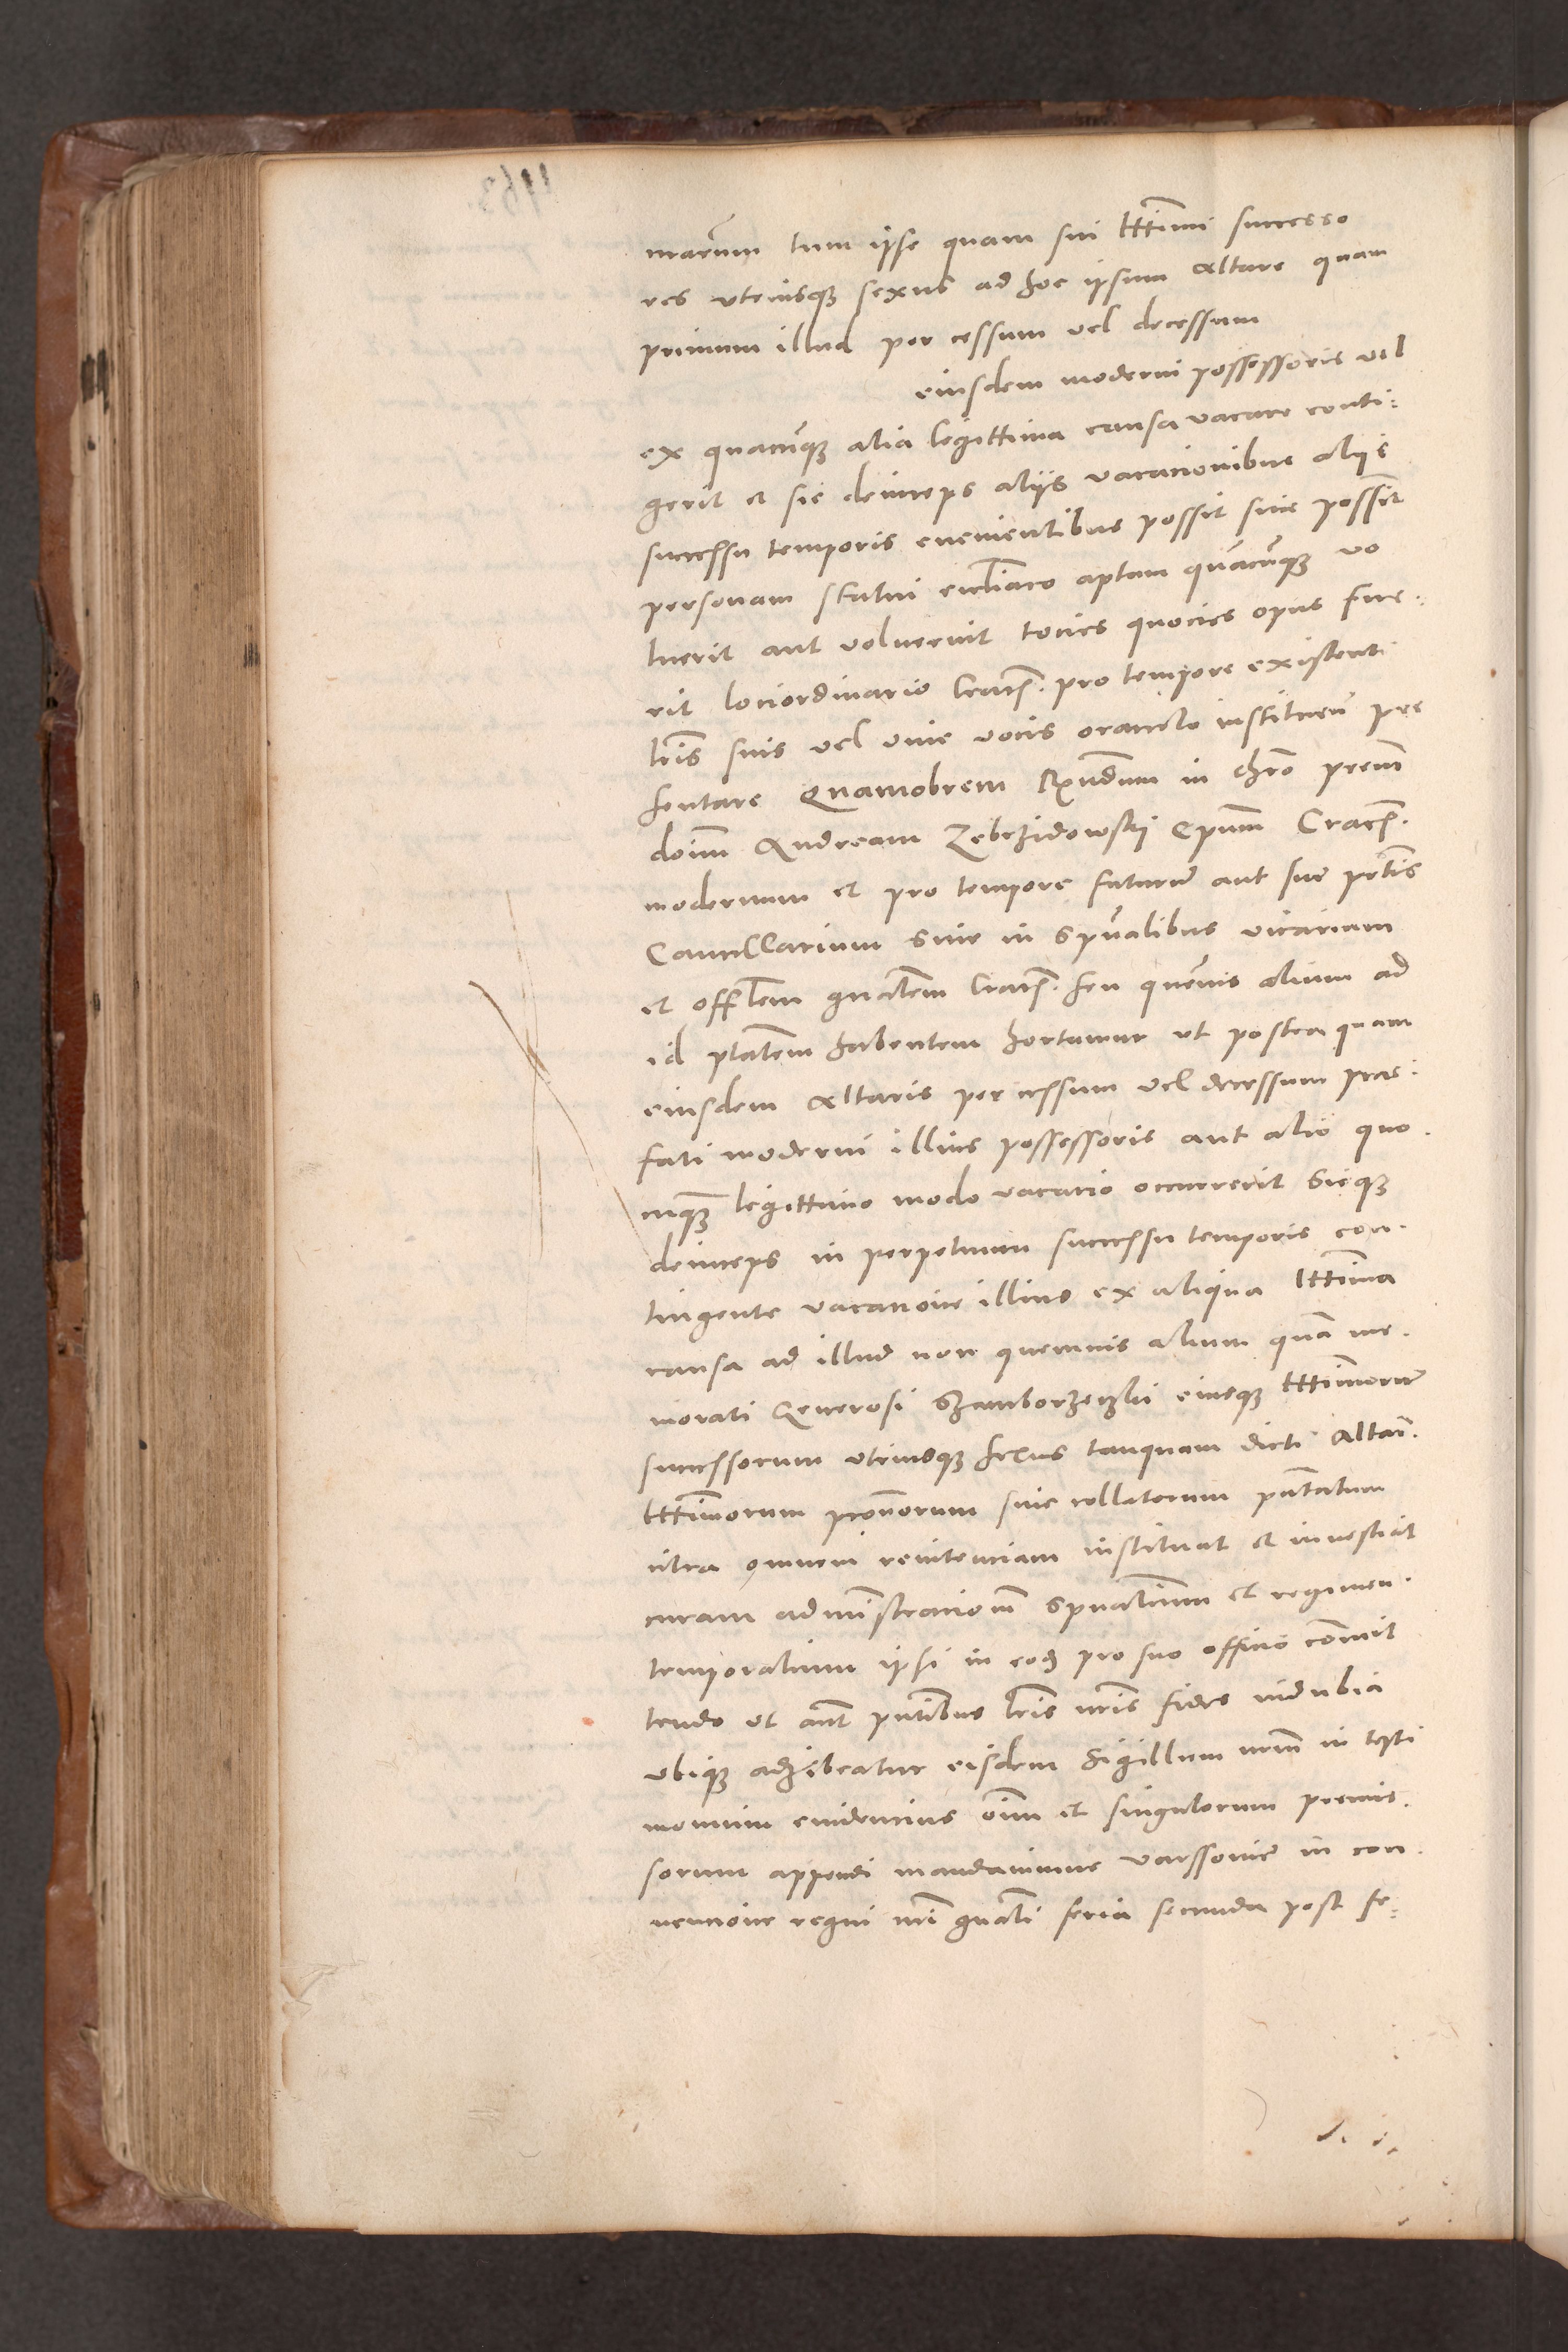 narum tum ipse quam sui lttimi successo
res vtriusque sexus ad hoc ipsum altare quam
primum illud per cessum vel decessum
eiusdem moderni possessoris vel
ex quacunque alia legittima causa vacare conti=
gerit et sic deinceps aliis vacacionibus aliis
successu temporis euenientibus possit siue possint
personam statui eccliastico aptam quamcunque vo
luerit aut voluerint tocies quocies opus fue.
rit lociordinario Cracn. pro tempore existenti
lris suis vel viue vocis oraculo instituen pre
sentare Quamobrem Rndum in chro prem
dnum Andream Zebrzidowski Epum Cracn.
modernum et pro tempore futurum aut sue
Cancellarium siue in spualibus vicarium
et offlem gnalem Cracn. seu quemuis alium ad
id ptatem habentem hortamur vt postea quam
eiusdem altaris per cessum vel decessum prae.
fati moderni illius possessoris aut alio quo.
cunque legittimo modo vacatio occurrerit sicque
deinceps in perpetuum successu temporis con.
tingente vacatione illius ex aliqua lttima
causa ad illud non quemuis alium qua me.
morati Generosi eiusque lttimorum
successorum vtriusque sexus tanquam dicti altari.
lttimorum pronorum siue collatorum pntatum
vltra omnem renitenciam instituat et inuestiat
curam administracionem spualium et regimen
temporalium ipsi in eod pro suo officio commit
tendo vt aut pntibus lris nris fides indubia
vbique adhibeatur eisdem sigillum nrum in testi
monium euidencius oim et singulorum premis.
sorum appendi mandauimus Varssouie in con.
uencione regni nri gnali feria secunda post fe=